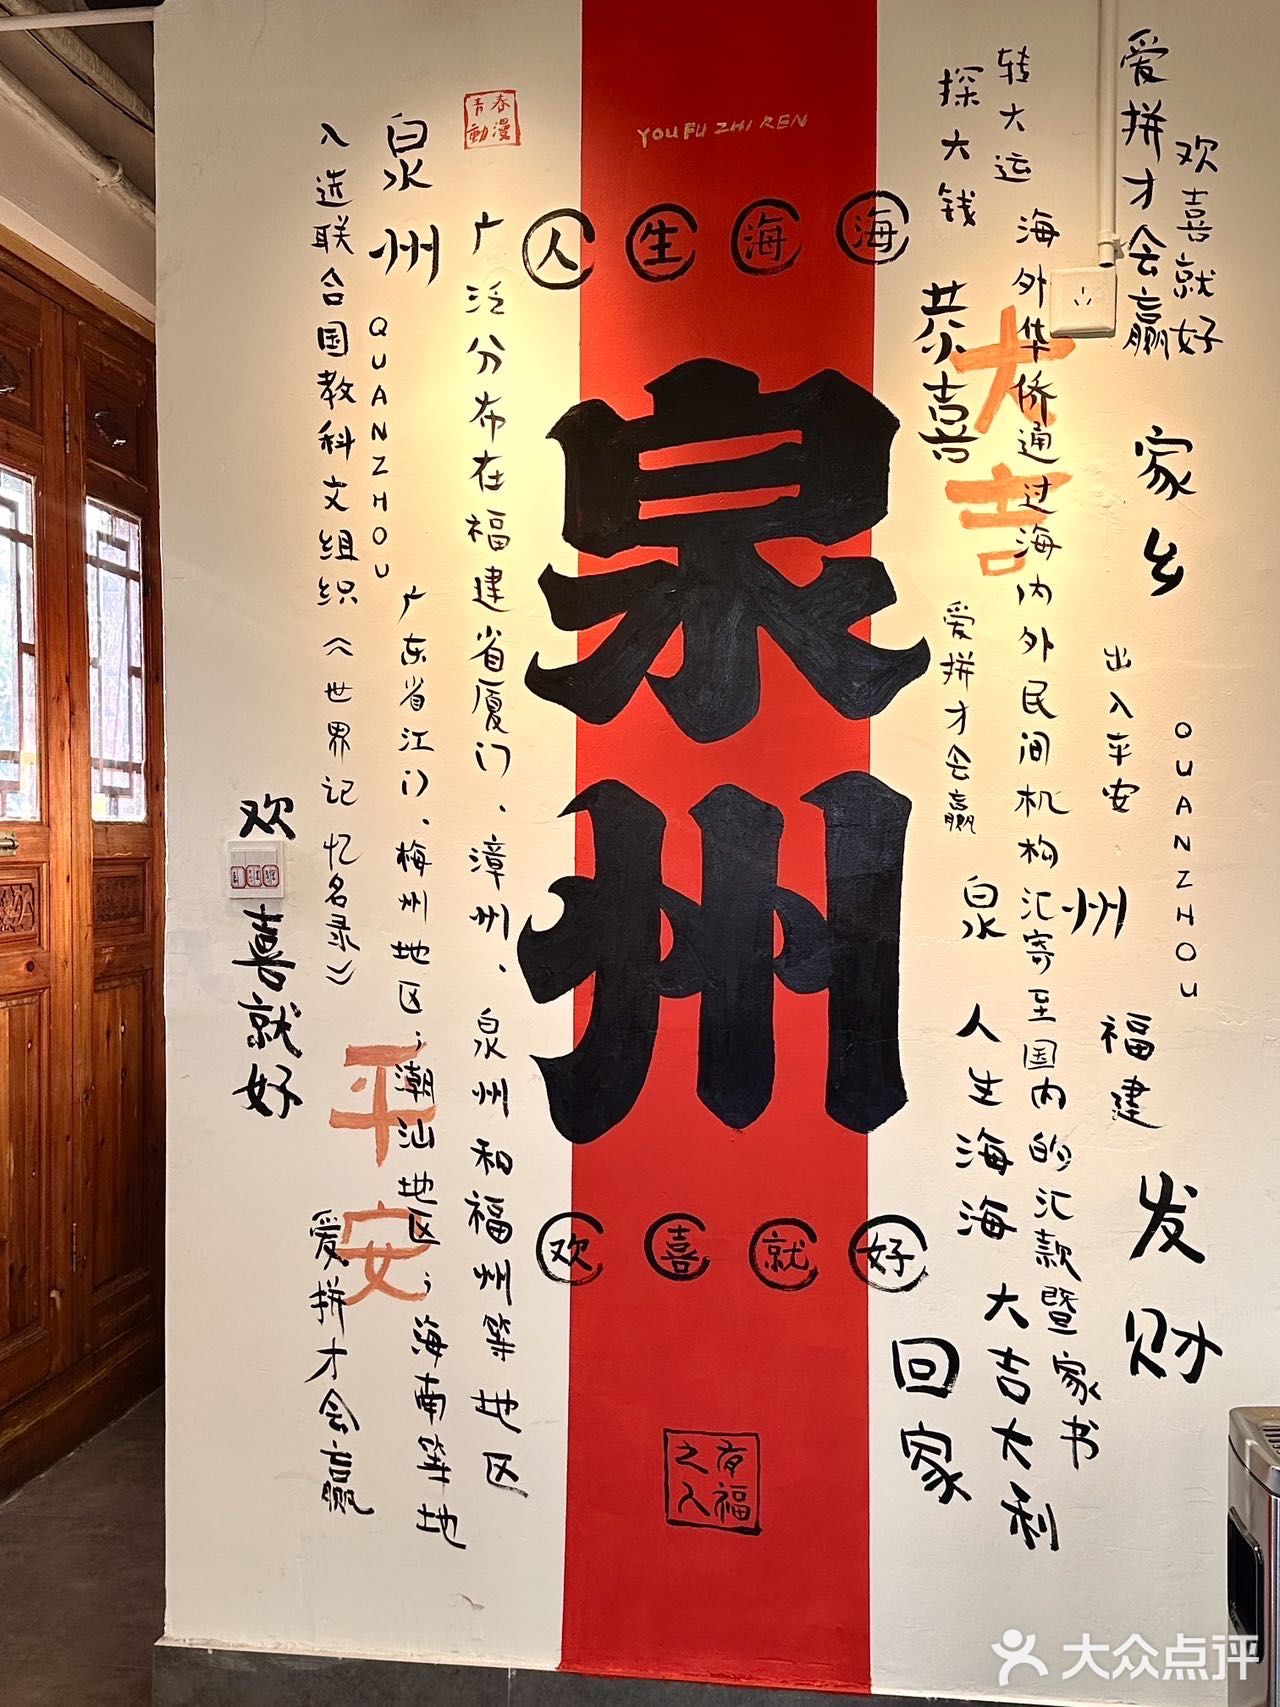 爱拼才会赢
欢喜就好
转大运
探大钱
海外华侨通过海内外民间机构汇寄至国内的汇款暨家书
恭喜
大吉
家乡
出入平安
QUANZHOU
爱拼才会赢
泉州
福建
发财
人生海海
大吉大利
回家
YOU FU ZHI REN
人生海海
泉州
欢喜就好
有福之人
青春動漫
广泛分布在福建省厦门、漳州、泉州和福州等地区
泉州
QUANZHOU
广东省江门、梅州地区;潮汕地区;海南等地
入选联合国教科文组织《世界记忆名录》
平安
爱拼才会赢
欢喜就好
大众点评